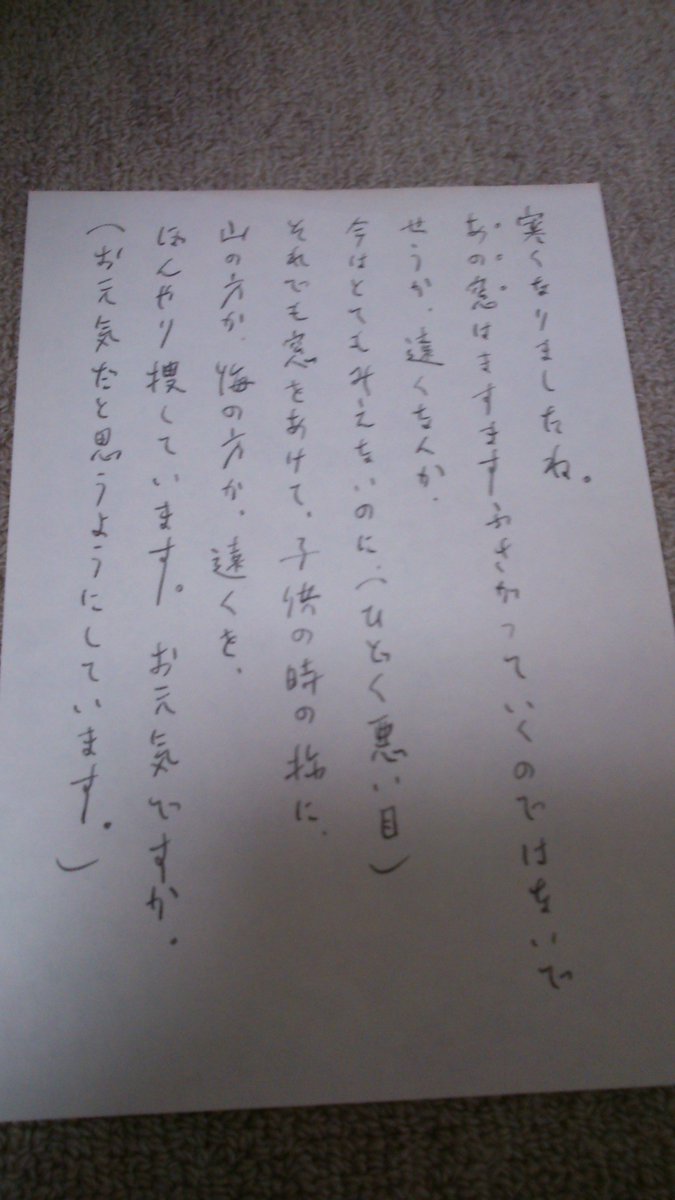 寒くなりましたね。
あの窓はますますふさがっていくのではないで
せうか、遠くなんか、
今はとてもみえないのに、(ひどく悪い目)
それでも窓をあけて、子供の時の様に、
山の方か、海の方か、遠くを、
ぼんやり捜しています。お元気ですか。
(お元気だと思うようにしています。)